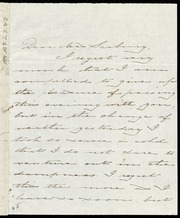 Dear Miss Sedbury,
I regret very
much that I am
compelled to give up
the pleasure of passing
this evening with you,
but in the change of
weather yesterday I
took so severe a cold
that I do not dare to
venture out in the
dampness. I regret
this the more as I
leave so soon but